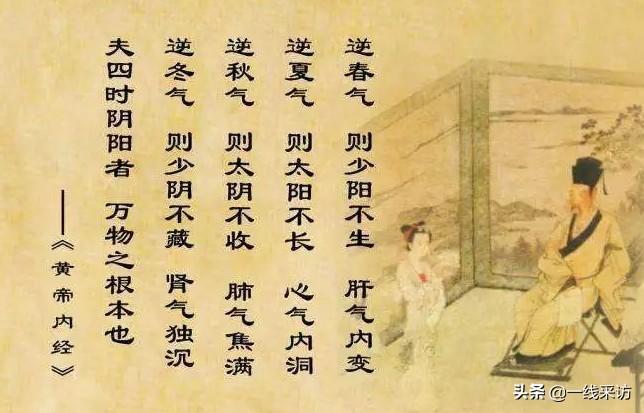 逆春气 则少阳不生 肝气内变
逆夏气 则太阳不长 心气内洞
逆秋气 则太阴不收 肺气焦满
逆冬气 则少阴不藏 肾气独沉
夫四时阴阳者 万物之根本也
——《黄帝内经》
头条 @一线采访